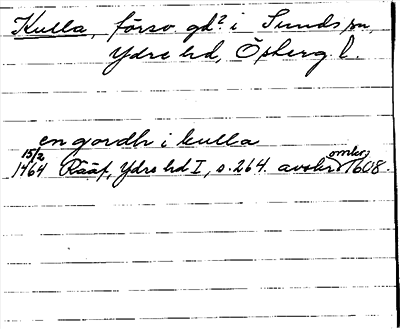 Kulla, försv. gd? i Sunds sn,
Ydre hd, Ösberg. l.
en gordh i kulla
15/2 1464 Rääf, Ydre hd I, s. 264. avskr omkr 1608.